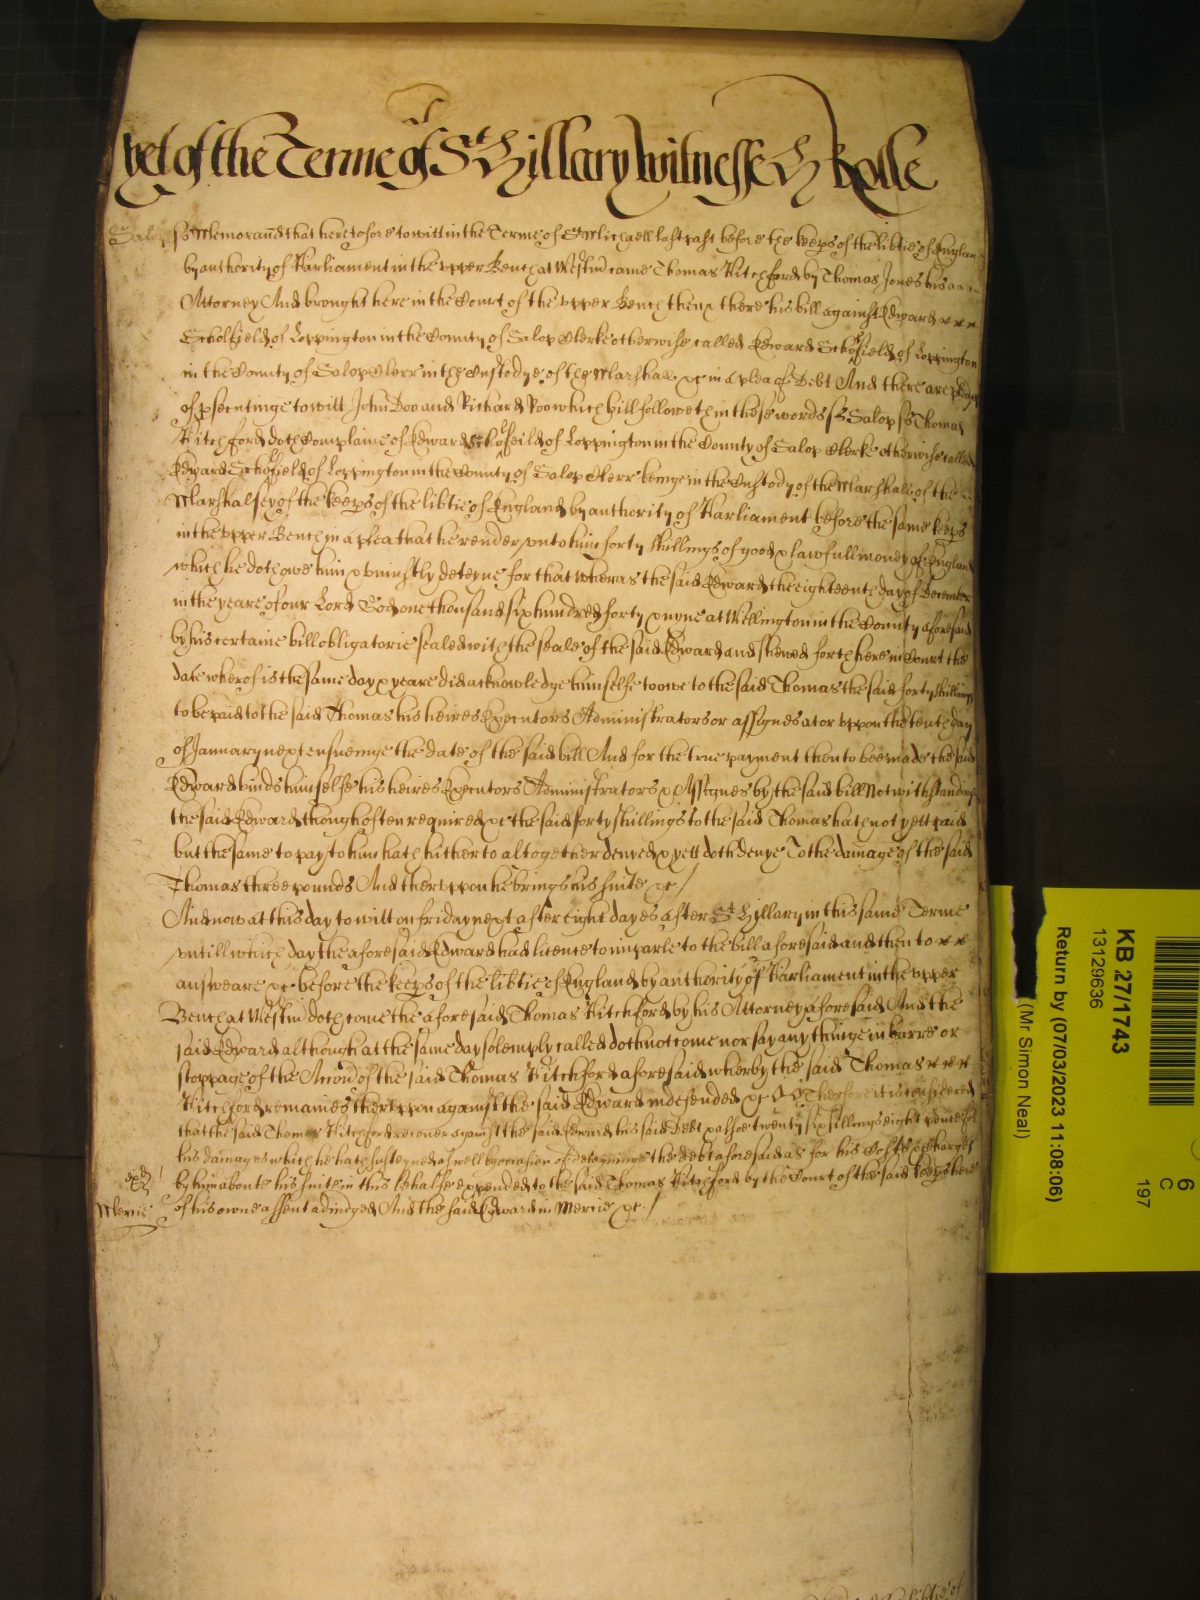 yet of the Terme of St Hillary Witnesse H Rolle
Salop ss Memorand that heretofore to witt in the Terme of St Michaell last past before the keeps of the libtie of England
by authority of Parliament in the vpper Bench at Westm came Thomas Pitchford by Thomas Jones his
Attorney And brought here in the Court of the vpper Bench then & there his bill against Edward
Scholfield of Loppington in the County of Salop Clerke otherwise called Edward Scholfield of Loppington
in the County of Salop Clerr in the Custodye of the Marshall &c in a plea of Debt And there are pledges
of psecutinge to witt John Doo and Richard Roo which bill followeth in these words ss Salop ss Thomas
Pitchford doth Complaine of Edward Scholfeild of Loppington in the County of Salop Clerke otherwise called
Edward Scholfield of Loppington in the County of Salop Clerr beinge in the Custody of the Marshall of the
Marshalsey of the keeps of the libtie of England by authority of Parliament before the same keeps
in the vpper Bench in a plea that he render vnto him forty shillings of good & lawfull money of England
which he doth owe him & vniustly deteyne for that wheras the said Edward the eighteenth day of December
in the yeare of our Lord God one thousand six hundred forty & nyne at Wellington in the County aforesaid
by his certaine bill obligatorie sealed with the seale of the said Edward and shewed forth here in Court the
date wherof is the same day & yeare did acknowledge himselfe to owe to the said Thomas the said forty shillings
to be paid to the said Thomas his heires Executors Administrators or assignes at or vppon the tenth day
of January next ensueinge the date of the said bill And for the true payment then to bee made the said
Edward binds himselfe his heires Executors Administrators & Assignes by the said bill Notwithstanding
the said Edward though often required &c the said forty shillings to the said Thomas hath not yett paid
but the same to pay to him hath hitherto altogether denyed & yett doth denye To the damage of the said
Thomas three pounds And thervppon he brings his suite &c /
And now at this day to witt on friday next after eight dayes after St Hillary in this same Terme
vntill which day the aforesaid Edward had licence to imparle to the bill aforesaid and then to
answeare &c before the keeps of the libtie of England by authority of Parliament in the vpper
Bench at Westm doth come the aforesaid Thomas Pitchford by his Attorney aforesaid And the
said Edward although at the same day solemply called doth not come nor say any thinge in barre or
stoppage of the Accon of the said Thomas Pitchford aforesaid wherby the said Thomas
Pitchford remaines thervppon against the said Edward vndefended &c Therfore it is considered
that the said Thomas Pitchford recover against the said Edward his said Debt & alsoe twenty six sillings eight pence for
his damages which he hath susteyned aswell by occasion of deteyninge the debt aforesaid as for his Costs & Charges
by him aboute his suite in this behalfe expended to the said Thomas Pitchford by the Court of the said keeps here
Mercie of his owne assent adiudged And the said Edward in Mercie &c /
KB 27/1743
13129636
Return by (07/03/2023 11:08:06)
(Mr Simon Neal)
6
C
197